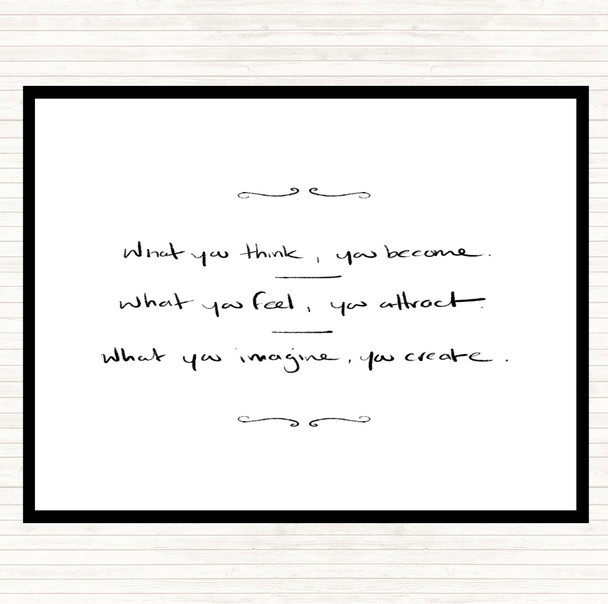 What you think, you become.
What you feel, you attract.
What you imagine, you create.